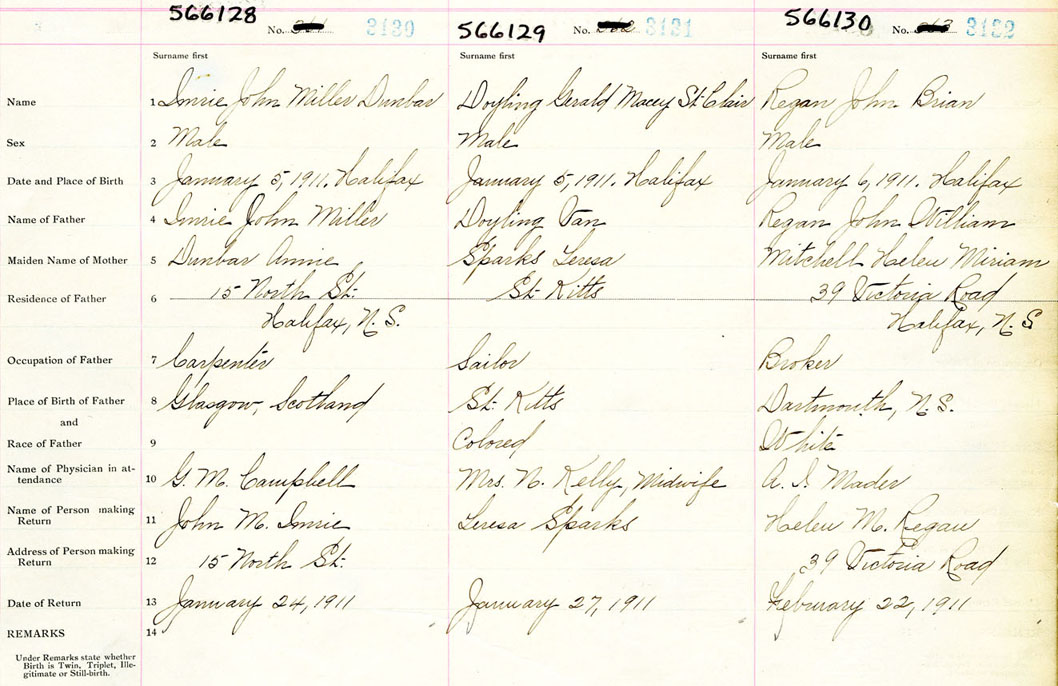 566128 566129 566130
No. 3130 No. 3131 No. 3132
Surname first Surname first Surname first
Name 1 Imrie John Miller Dunbar Doyling Gerald Macey St. Clair Regan John Brian
Sex 2 Male Male Male
Date and Place of Birth 3 January 5, 1911. Halifax January 5, 1911. Halifax January 6, 1911. Halifax
Name of Father 4 Imrie John Miller Doyling Van Regan John William
Maiden Name of Mother 5 Dunbar Annie Sparks Leresa Mitchell Helen Miriam
Residence of Father 6 15 North St. St. Kitts 39 Victoria Road
Halifax, N.S. Halifax, N.S
Occupation of Father 7 Carpenter Sailor Broker
Place of Birth of Father 8 Glasgow, Scotland St. Kitts Dartmouth, N.S.
and
Race of Father 9 Colored White
Name of Physician in at-
tendance 10 G. M. Campbell Mrs. N. Kelly, Midwife A. I. Mader
Name of Person making
Return 11 John M. Imrie Leresa Sparks Helen M. Regan
Address of Person making
Return 12 15 North St. 39 Victoria Road
Date of Return 13 January 24, 1911 January 27, 1911 February 22, 1911
REMARKS 14
Under Remarks state whether
Birth is Twin, Triplet, Ille-
gitimate or Still-birth.